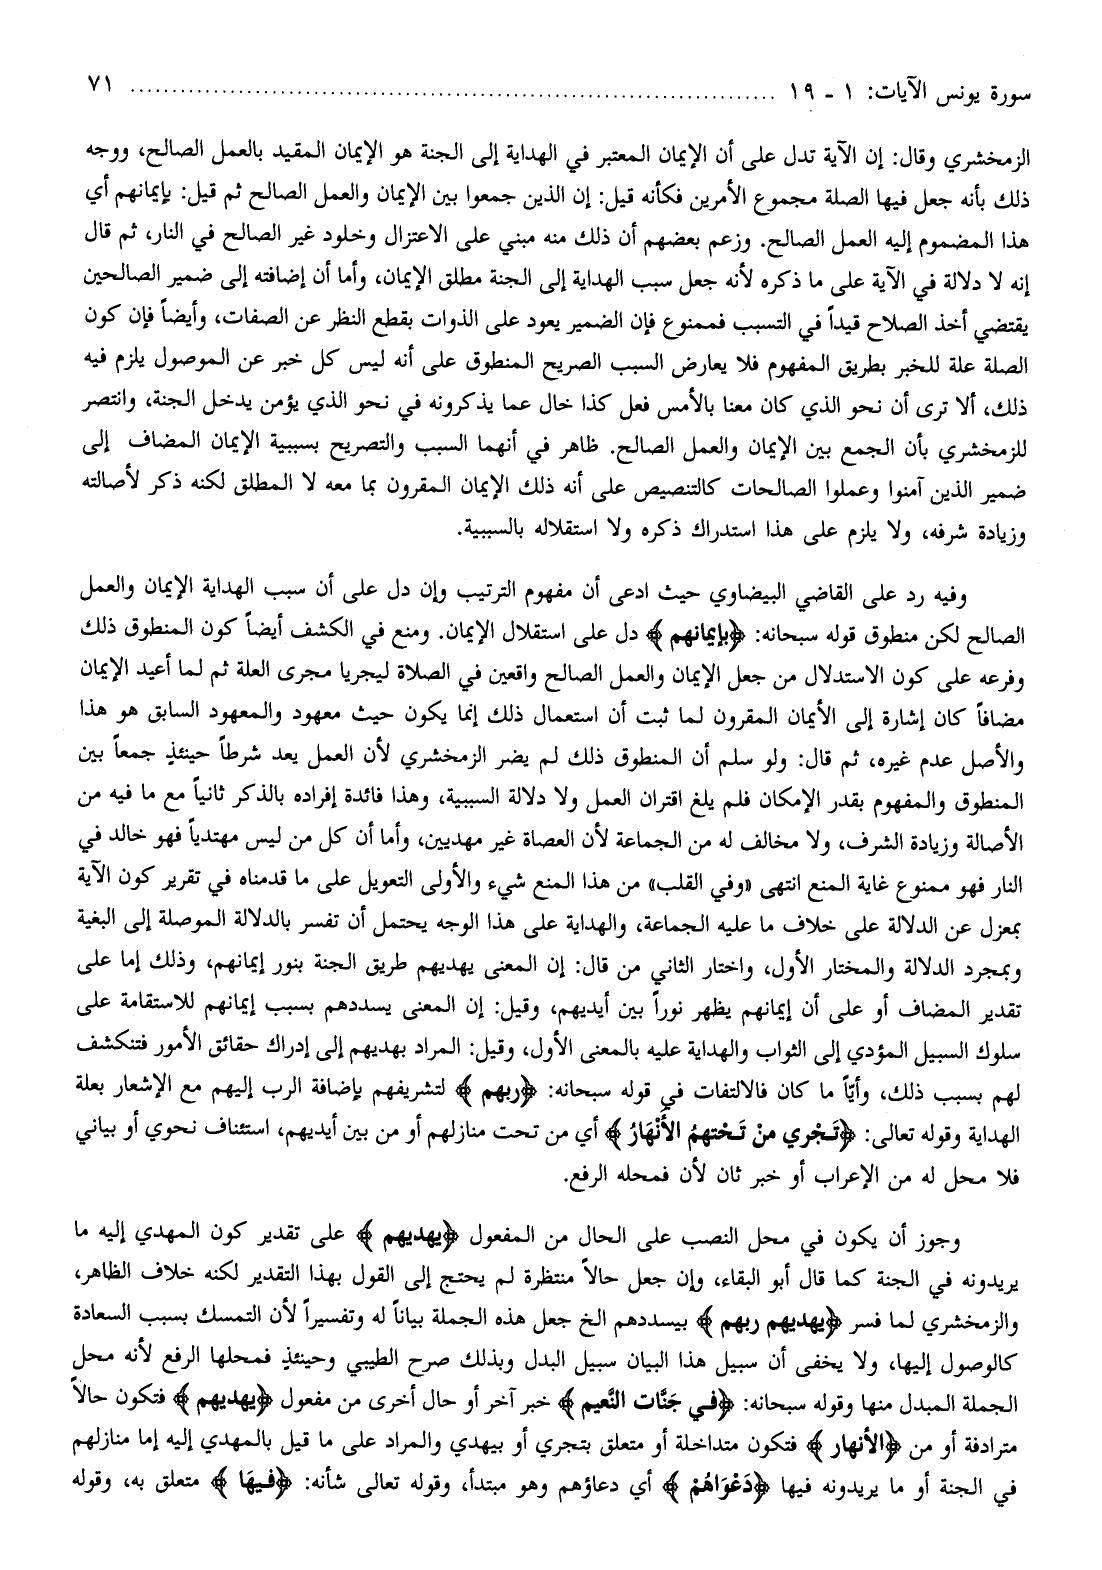 سورة يونس الآيات: ١ - ١٩ ........................................................................... ٧١
الزمخشري وقال: إن الآية تدل على أن الإيمان المعتبر في الهداية إلى الجنة هو الإيمان المقيد بالعمل الصالح، ووجه
ذلك بأنه جعل فيها الصلة مجموع الأمرين فكأنه قيل: إن الذين جمعوا بين الإيمان والعمل الصالح ثم قيل: بإيمانهم أي
هذا المضموم إليه العمل الصالح. وزعم بعضهم أن ذلك منه مبني على الاعتزال وخلود غير الصالح في النار، ثم قال
إنه لا دلالة في الآية على ما ذكره لأنه جعل سبب الهداية إلى الجنة مطلق الإيمان، وأما أن إضافته إلى ضمير الصالحين
يقتضي أخذ الصلاح قيداً في التسبب فممنوع فإن الضمير يعود على الذوات بقطع النظر عن الصفات، وأيضاً فإن كون
الصلة علة للخبر بطريق المفهوم فلا يعارض السبب الصريح المنطوق على أنه ليس كل خبر عن الموصول يلزم فيه
ذلك، ألا ترى أن نحو الذي كان معنا بالأمس فعل كذا خال عما يذكرونه في نحو الذي يؤمن يدخل الجنة، وانتصر
للزمخشري بأن الجمع بين الإيمان والعمل الصالح. ظاهر في أنهما السبب والتصريح بسببية الإيمان المضاف إلى
ضمير الذين آمنوا وعملوا الصالحات كالتنصيص على أنه ذلك الإيمان المقرون بما معه لا المطلق لكنه ذكر لأصالته
وزيادة شرفه، ولا يلزم على هذا استدراك ذكره ولا استقلاله بالسببية.
وفيه رد على القاضي البيضاوي حيث ادعى أن مفهوم الترتيب وإن دل على أن سبب الهداية الإيمان والعمل
الصالح لكن منطوق قوله سبحانه: ﴿بإيمانهم﴾ دل على استقلال الإيمان. ومنع في الكشف أيضاً كون المنطوق ذلك
وفرعه على كون الاستدلال من جعل الإيمان والعمل الصالح واقعين في الصلاة ليجريا مجرى العلة ثم لما أعيد الإيمان
مضافاً كان إشارة إلى الأيمان المقرون لما ثبت أن استعمال ذلك إنما يكون حيث معهود والمعهود السابق هو هذا
والأصل عدم غيره، ثم قال: ولو سلم أن المنطوق ذلك لم يضر الزمخشري لأن العمل يعد شرطاً حينئذٍ جمعاً بين
المنطوق والمفهوم بقدر الإمكان فلم يلغ اقتران العمل ولا دلالة السببية، وهذا فائدة إفراده بالذكر ثانياً مع ما فيه من
الأصالة وزيادة الشرف، ولا مخالف له من الجماعة لأن العصاة غير مهديين، وأما أن كل من ليس مهتدياً فهو خالد في
النار فهو ممنوع غاية المنع انتهى «وفي القلب» من هذا المنع شيء والأولى التعويل على ما قدمناه في تقرير كون الآية
بمعزل عن الدلالة على خلاف ما عليه الجماعة، والهداية على هذا الوجه يحتمل أن تفسر بالدلالة الموصلة إلى البغية
وبمجرد الدلالة والمختار الأول، واختار الثاني من قال: إن المعنى يهديهم طريق الجنة بنور إيمانهم، وذلك إما على
تقدير المضاف أو على أن إيمانهم يظهر نوراً بين أيديهم، وقيل: إن المعنى يسددهم بسبب إيمانهم للاستقامة على
سلوك السبيل المؤدي إلى الثواب والهداية عليه بالمعنى الأول، وقيل: المراد بهديهم إلى إدراك حقائق الأمور فتنكشف
لهم بسبب ذلك، وأيّاً ما كان فالالتفات في قوله سبحانه: ﴿ربهم﴾ لتشريفهم بإضافة الرب إليهم مع الإشعار بعلة
الهداية وقوله تعالى: ﴿تَجْري مِنْ تَحْتهِمُ الأَنْهَارُ﴾ أي من تحت منازلهم أو من بين أيديهم، استئناف نحوي أو بياني
فلا محل له من الإعراب أو خبر ثان لأن فمحله الرفع.
وجوز أن يكون في محل النصب على الحال من المفعول ﴿يهديهم﴾ على تقدير كون المهدي إليه ما
يريدونه في الجنة كما قال أبو البقاء، وإن جعل حالاً منتظرة لم يحتج إلى القول بهذا التقدير لكنه خلاف الظاهر،
والزمخشري لما فسر ﴿يهديهم ربهم﴾ بيسددهم الخ جعل هذه الجملة بياناً له وتفسيراً لأن التمسك بسبب السعادة
كالوصول إليها، ولا يخفى أن سبيل هذا البيان سبيل البدل وبذلك صرح الطيبي وحينئذٍ فمحلها الرفع لأنه محل
الجملة المبدل منها وقوله سبحانه: ﴿في جَنَّات النَّعيم﴾ خبر آخر أو حال أخرى من مفعول ﴿يهديهم﴾ فتكون حالاً
مترادفة أو من ﴿الأنهار﴾ فتكون متداخلة أو متعلق بتجري أو بيهدي والمراد على ما قيل بالمهدي إليه إما منازلهم
في الجنة أو ما يريدونه فيها ﴿دَعْوَاهُمْ﴾ أي دعاؤهم وهو مبتدأ، وقوله تعالى شأنه: ﴿فيهَا﴾ متعلق به، وقوله